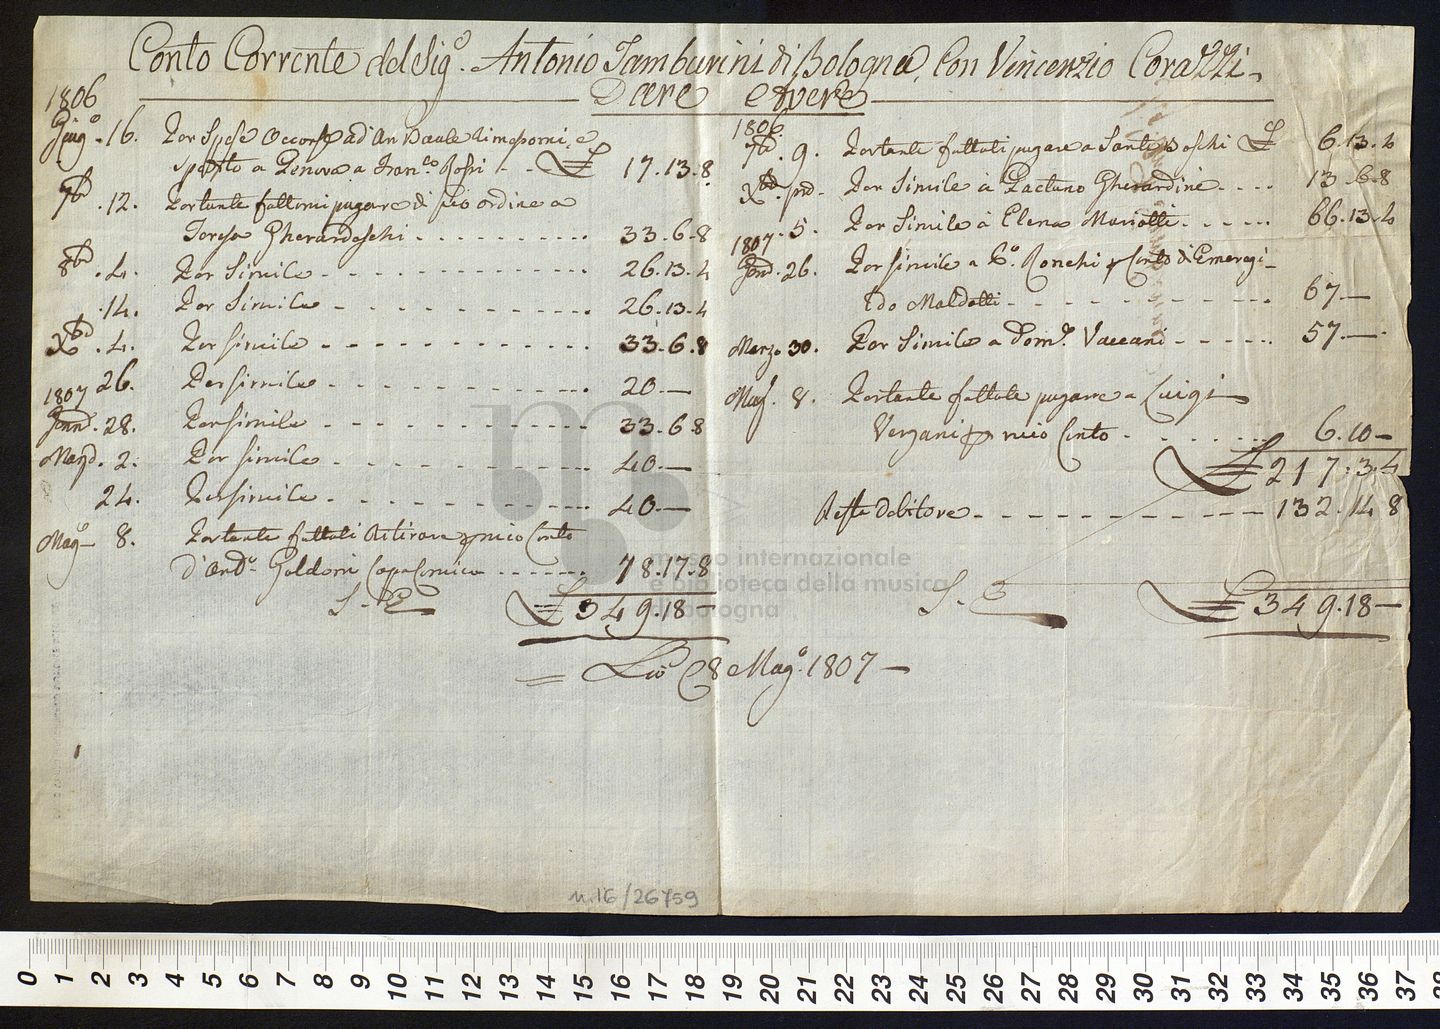 Conto Corrente del Sig.º Antonio Tamburini di Bologna, Con Vincenzio Corazzi
Dare e Avere
1806
Giug.º 16. Per Spese Occorse ad Un Baule rimessomi, e
spedito a Genova a Fran.co Rossi - - £ 17.13.8
7b. 12. Portante fattomi pagare di suo ordine a
Teresa Gherardeschi 33.6.8
8b. 4. Per Simile 26.13.4
14. Per Simile 26.13.4
Xb. 4. Per simile 33.6.8
26. Per simile 20.—
1807
Genn. 28. Per simile 33.6.8
Marzo. 2. Per simile 40.—
24. Per simile 40.—
Mag.º 8. Portante fattoli Ritirare p mio Conto
d'And.ª Goldoni Capo Comico 78.17.8
S. E. £ 349.18—
1806.
7b. 9. Portante fattoli pagare a Santi Boschi £ 6.13.4
Xb. pmo. Per Simile à Gaetano Gherardini 13.6.8
5. Per Simile à Elena Mariotti 66.13.4
1807
Genn. 26. Per simile a Ronchi p Conto di Emeregi-
do Maldotti 67—
Marzo 30. Per Simile a Dom.º Vaccani 57—
Mag. 8. Portante fattole pagare a Luigi
Vergani p mio Conto 6.10—
£ 217.3.4
Resta debitore 132.14.8
S. E. £ 349.18—
Li 8 Mag.º 1807—
m
museo internazionale
e biblioteca della musica
di bologna
n.16/26759
0 1 2 3 4 5 6 7 8 9 10 11 12 13 14 15 16 17 18 19 20 21 22 23 24 25 26 27 28 29 30 31 32 33 34 35 36 37 38